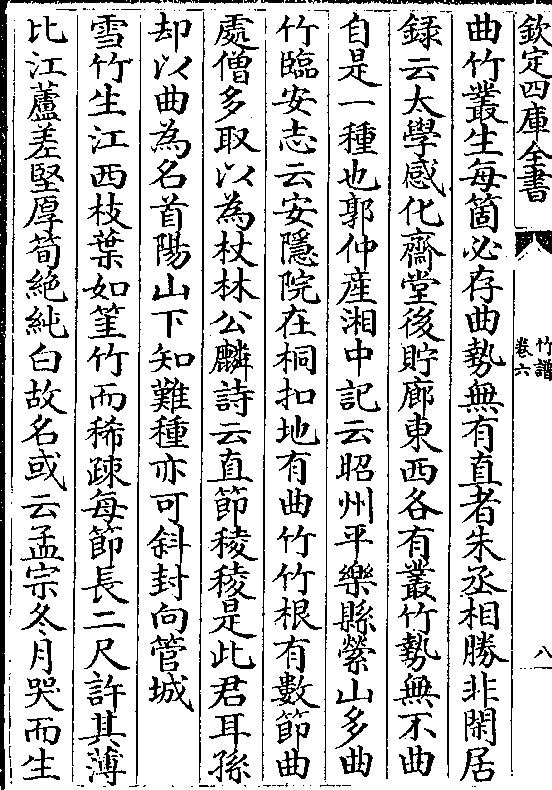 欽定四庫全書
竹譜
卷六
八
曲竹叢生每箇必存曲勢無有直者朱丞相勝非閑居
録云太學感化齋堂後貯廊東西各有叢竹勢無不曲
自是一種也郭仲産湘中記云昭州平樂縣縈山多曲
竹臨安志云安隱院在桐扣地有曲竹竹根有數節曲
處僧多取以為杖林公麟詩云直節稜稜是此君耳孫
却以曲為名首陽山下知難種亦可斜封向管城
雪竹生江西枝葉如篁竹而稀疎每節長二尺許其薄
比江蘆差堅厚筍絶純白故名或云孟宗冬月哭而生